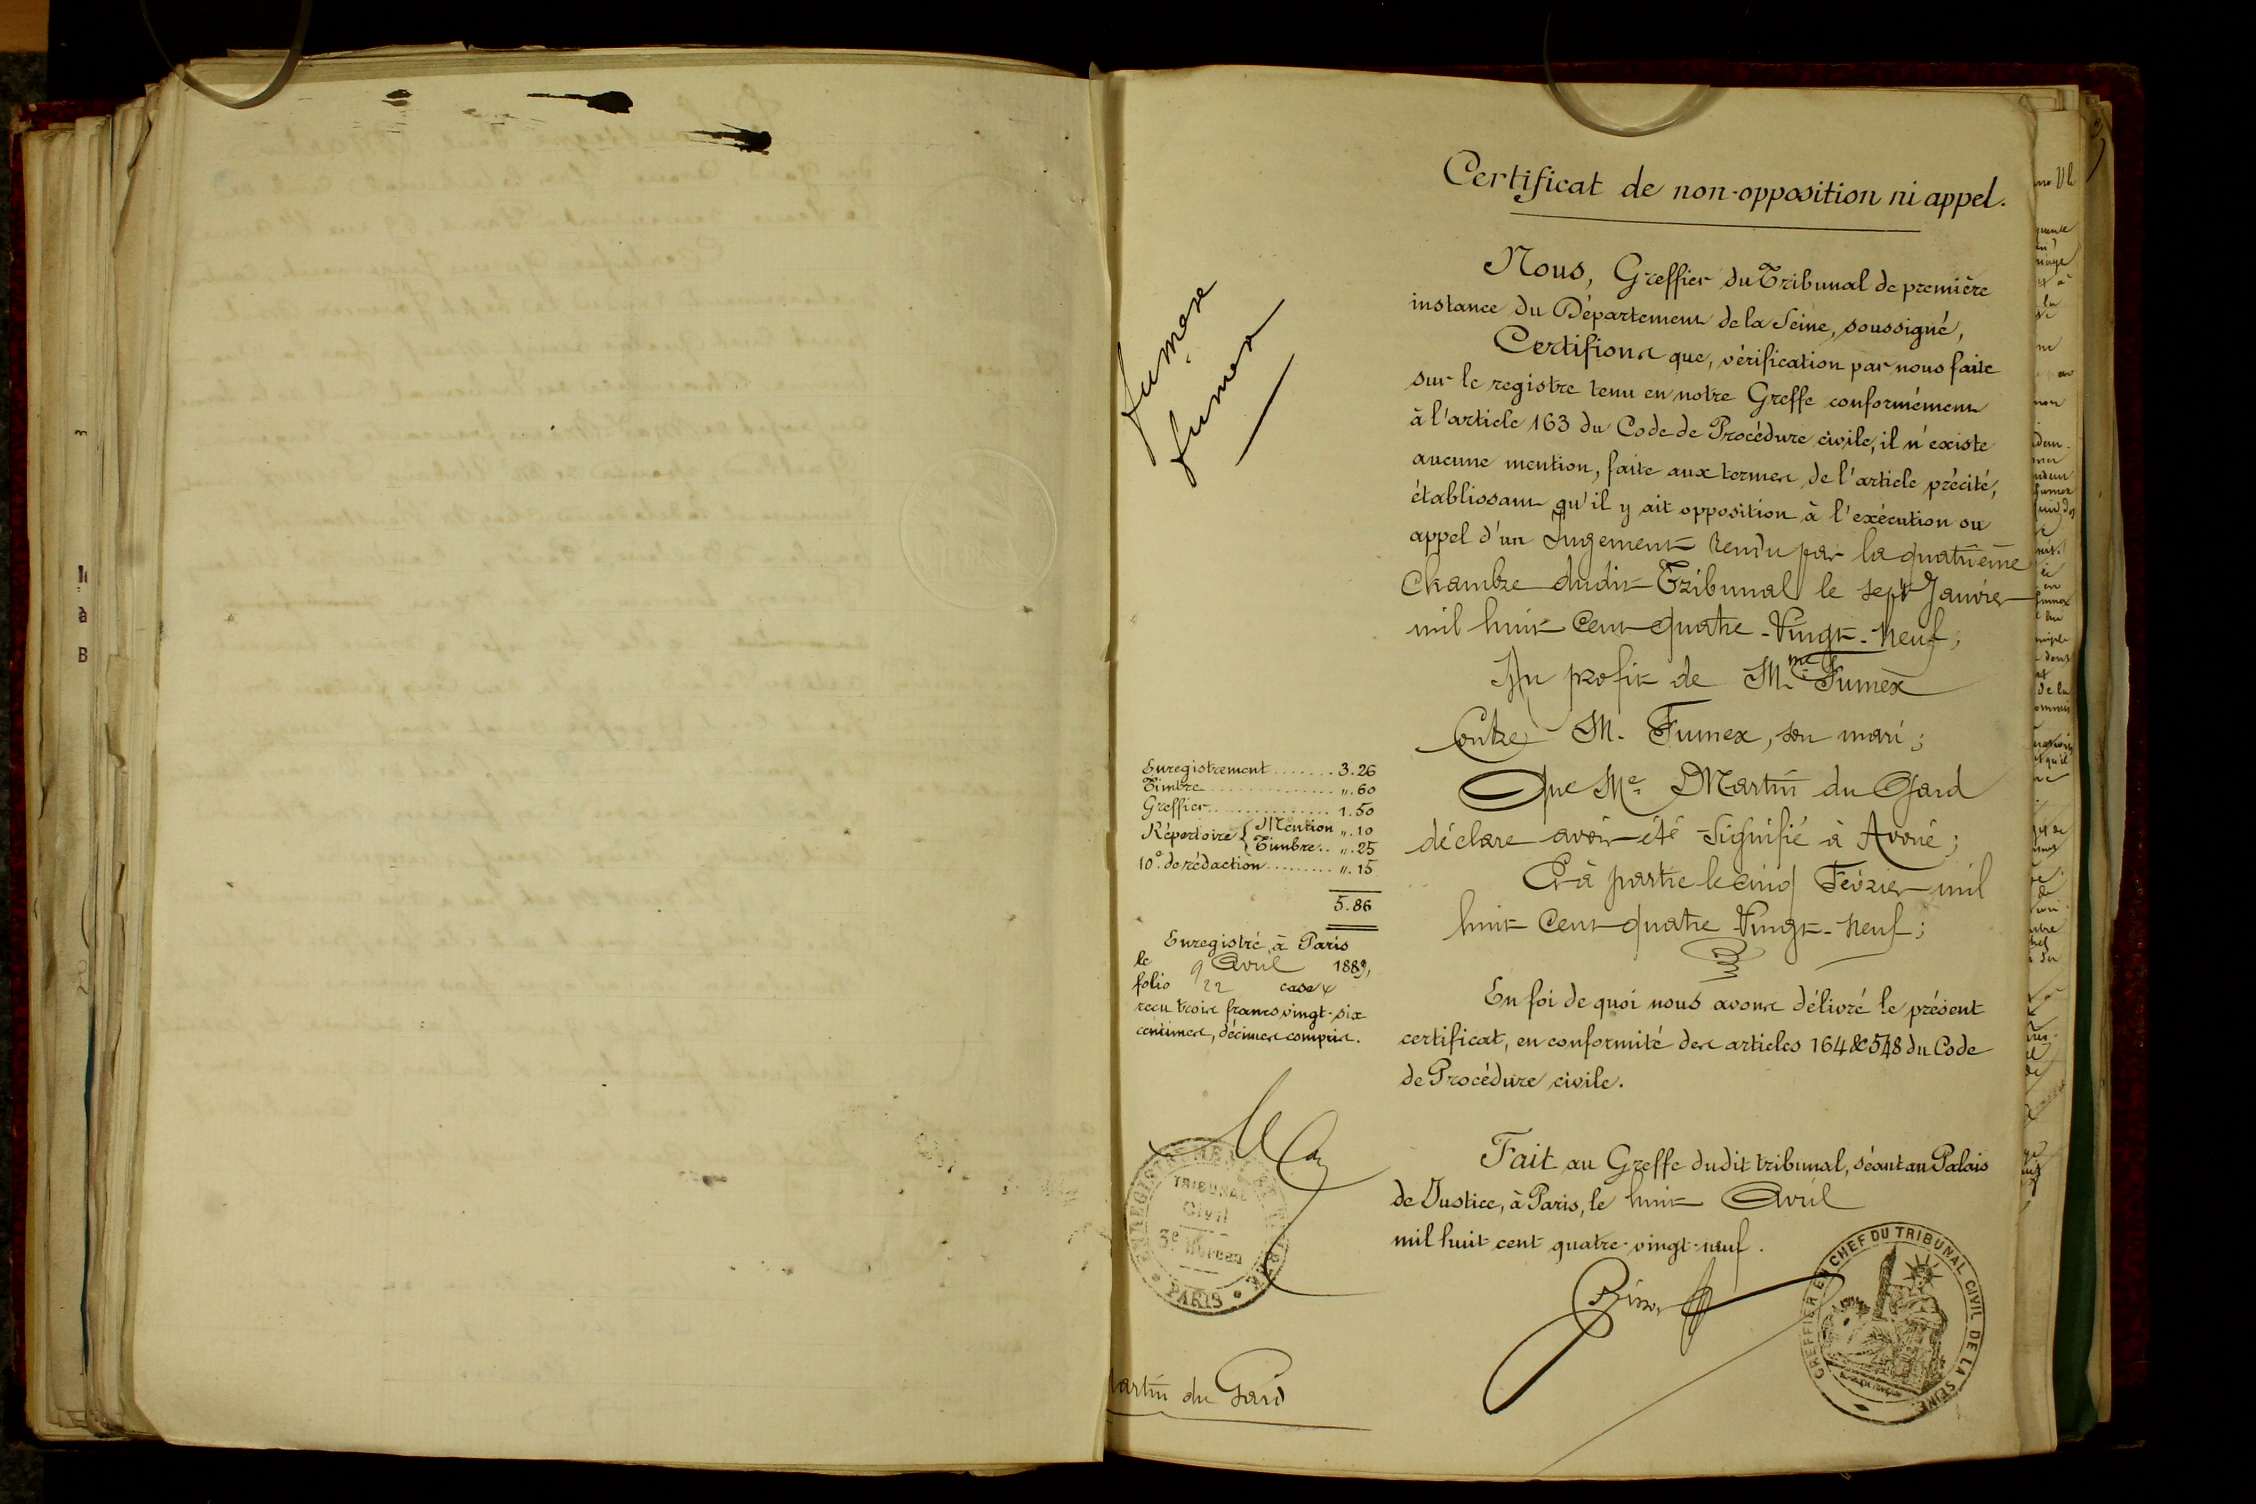 Certificat de non-opposition ni appel.
Nous, Greffier du Tribunal de première
instance du Département de la Seine, soussigné,
Certifions que, vérification par nous faite
sur le registre tenu en notre Greffe conformément
à l'article 163 du Code de Procédure civile, il n'existe
aucune mention, faite aux termes de l'article précité,
établissant qu'il y ait opposition à l'exécution ou
appel d'un Jugement rendu par la quatrième
Chambre dudit Tribunal le sept Janvier
mil huit Cent quatre-Vingt-neuf;
Au profit de Mme Fumex
Contre M. Fumex, son mari;
Que Me Martin du Gard
déclare avoir été signifié à Avoué;
Et à partie le cinq Février mil
huit Cent quatre Vingt-neuf;
En foi de quoi nous avons délivré le présent
certificat, en conformité des articles 164 & 548 du Code
de Procédure civile.
Fait au Greffe dudit tribunal, séant au Palais
de Justice, à Paris, le huit Avril
mil huit cent quatre-vingt-neuf.
GREFFIER EN CHEF DU TRIBUNAL CIVIL DE LA SEINE
fumex
fumex
Enregistrement ....... 3.26
Timbre ....... ".60
Greffier ....... 1.50
Répertoire { Mention ".10
Timbre .. ".25
10e de rédaction ....... ".15
5.86
Enregistré à Paris
le 9 Avril 1889,
folio 22 case
reçu trois francs vingt-six
centimes, décimes compris.
ENREGISTREMENT ET TIMBRE
TRIBUNAL
Civil
3e Bureau
PARIS
artin du Gard